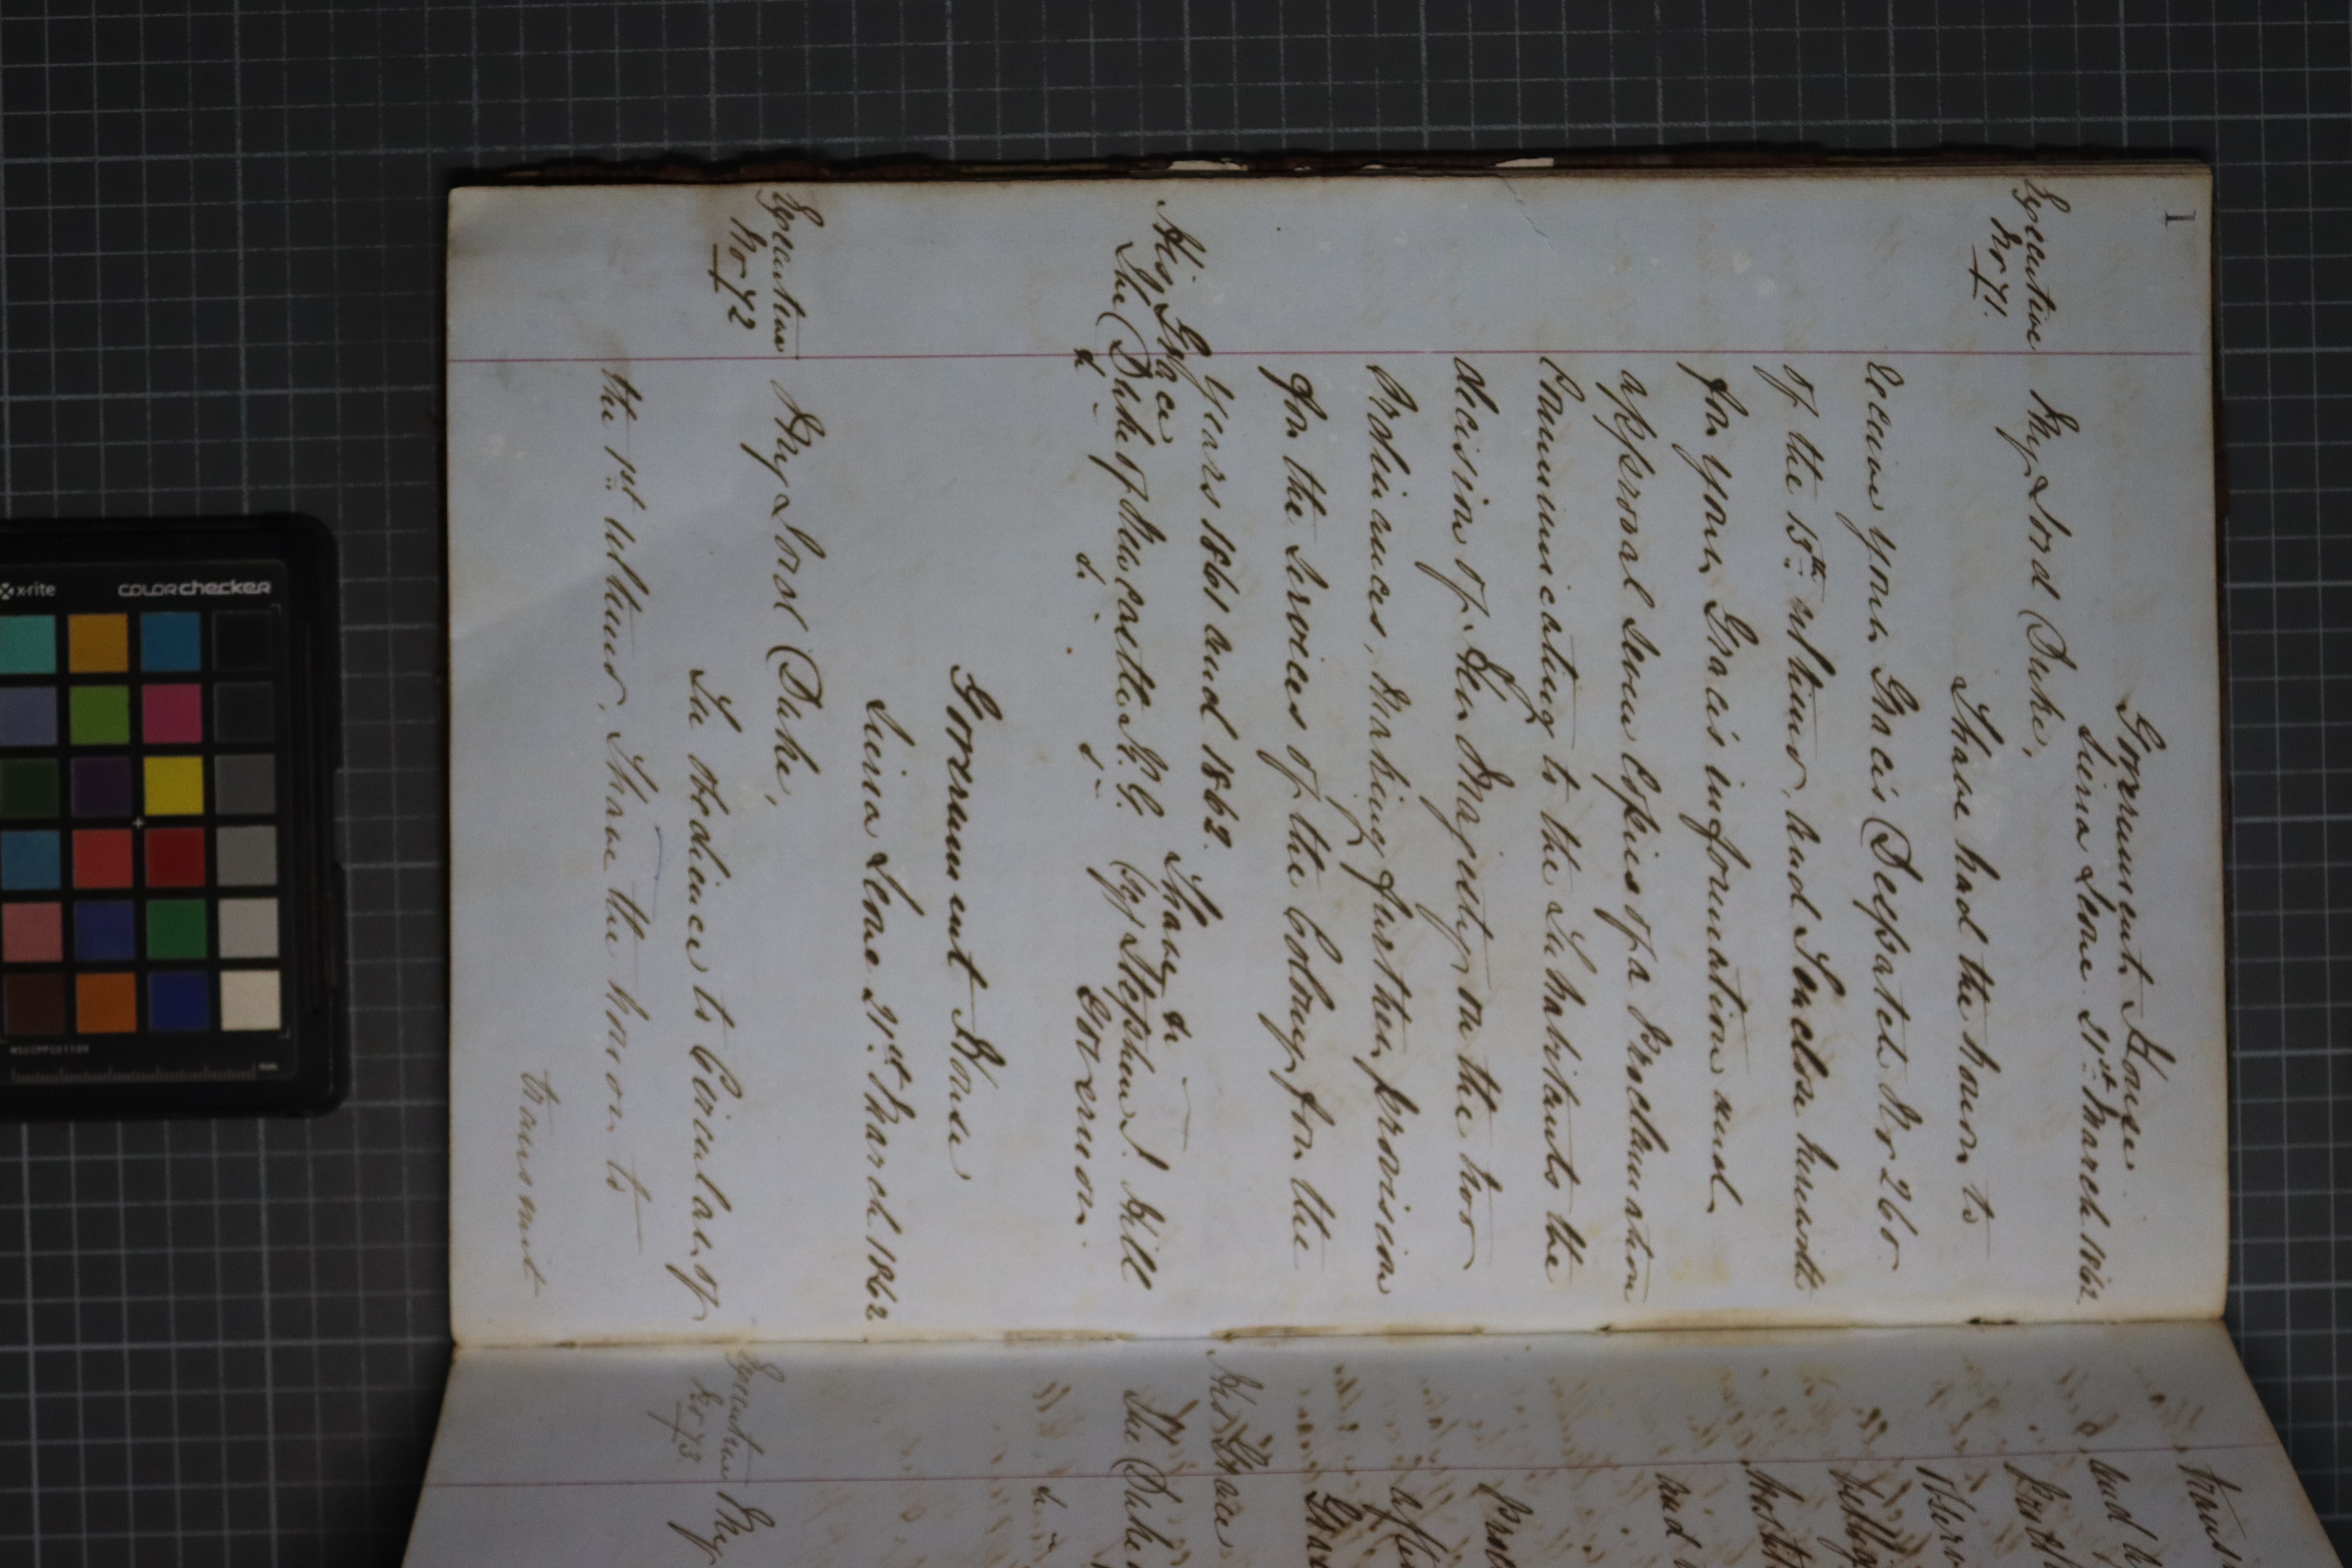 1
Government House
Sierra Leone 21st March 1862.
Executive
No 71.
My Lord Duke,
I have had the honor to
receive your Grace's Despatch No 260
of the 15th ultimo, and I enclose herewith
for your Grace's information and
approval seven Copies of a Proclamation
Communicating to the Inhabitants the
decision of Her Majesty on the two
Ordinances, Making further provision
for the Services of the Colony for the
years 1861 and 1862.
I have &c
His Grace
The Duke of Newcastle K.G.
(sg) Stephen J. Hill
&c. &c. &c.
Governor.
Government House
Sierra Leone 21st March 1862
Executive
No 72
My Lord Duke,
In obedience to Circular of
the 1st ultimo, I have the honor to
transmit
and
His Grace
The Duke
&c.
Executive
No 73
My
x-rite
colorchecker